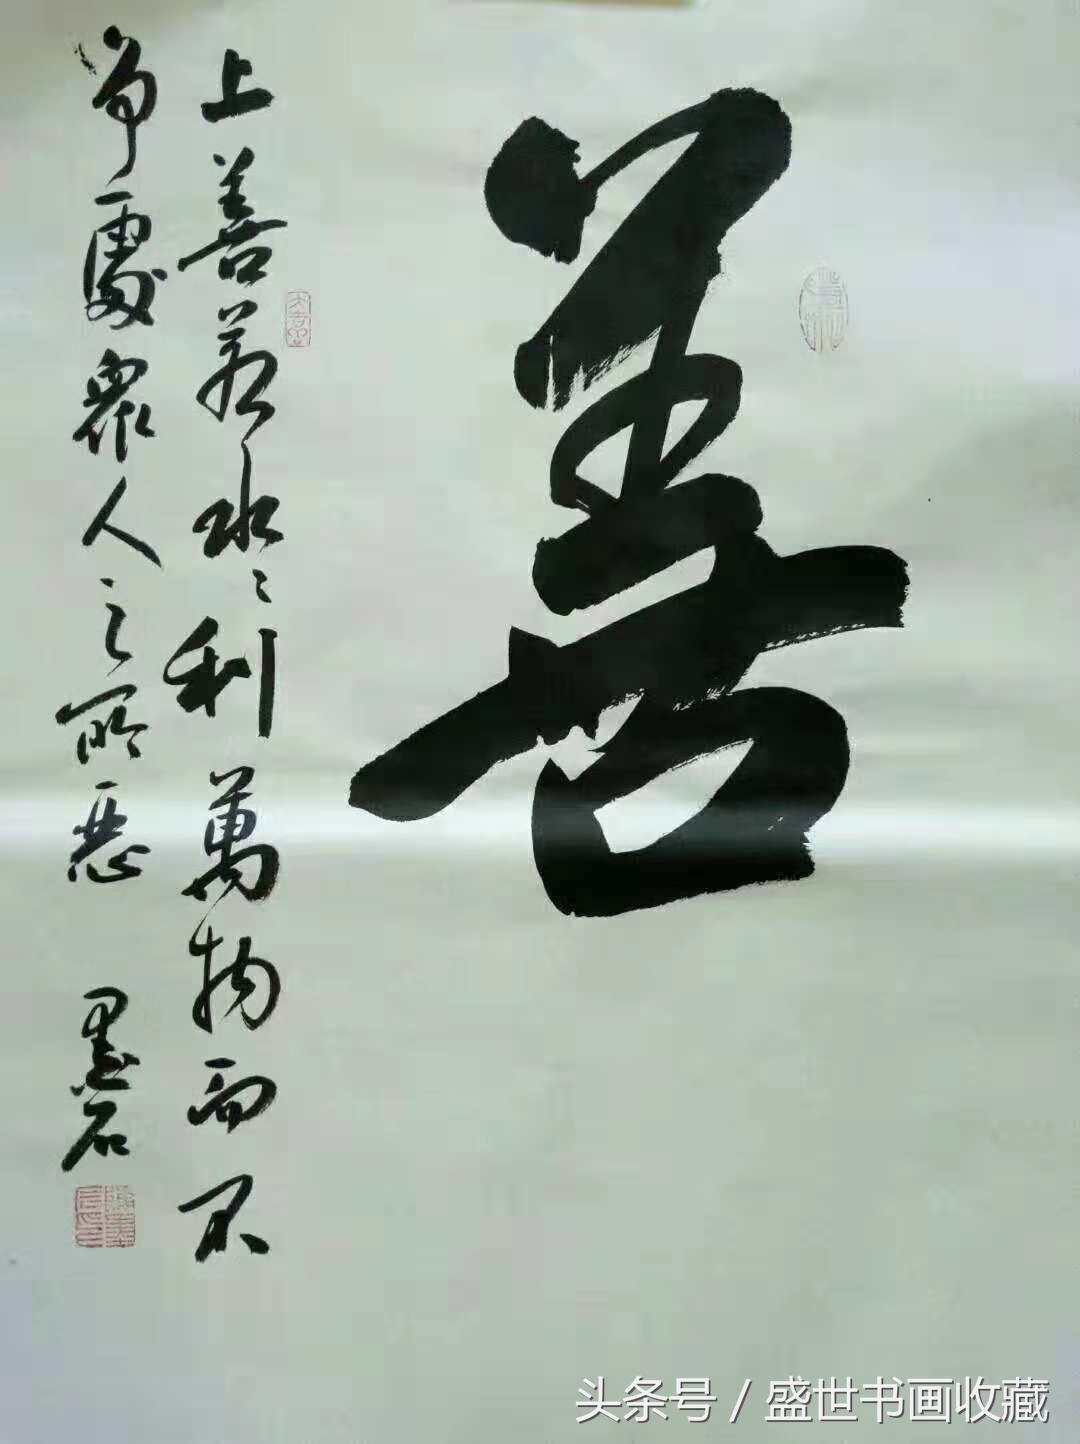 善
上善若水〻利萬物而不
爭處眾人之所惡
墨石
头条号 / 盛世书画收藏